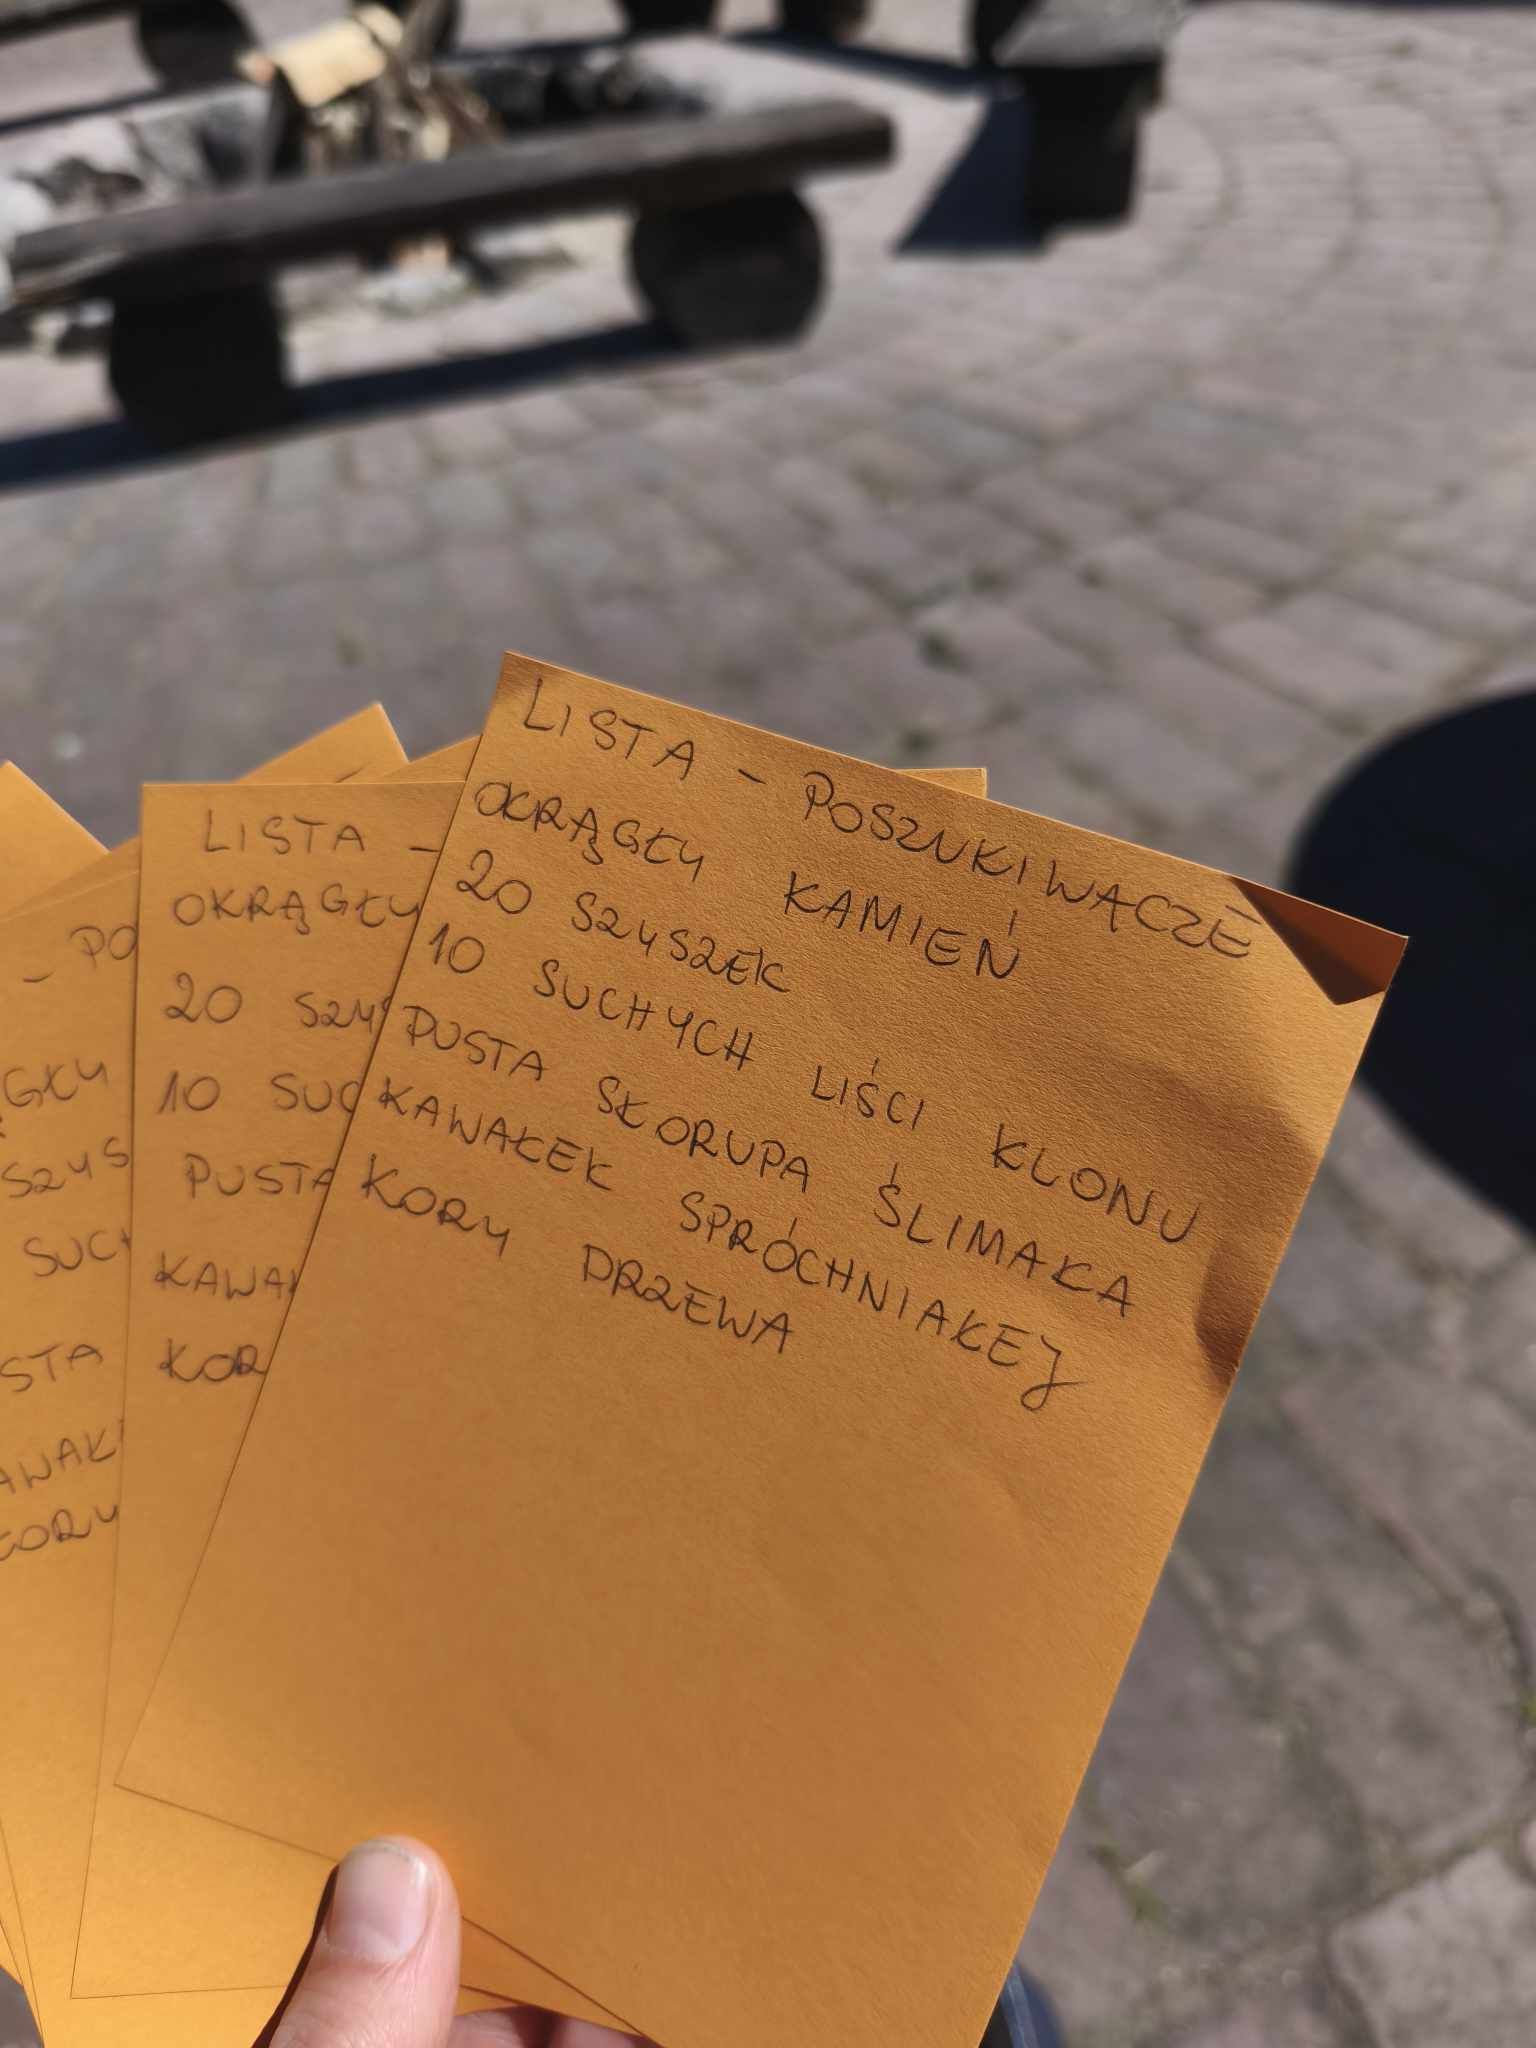 LISTA - POSZUKIWACZE
OKRĄGŁY KAMIEŃ
20 SZYSZEK
10 SUCHYCH LIŚCI KLONU
PUSTA SKORUPA ŚLIMAKA
KAWAŁEK SPRÓCHNIAŁEJ
KORY DRZEWA
LISTA -
OKRĄGŁY
20 SZYS
10 SUC
PUSTA
KAWA
KOR
- PO
GŁY
SZYS
SUCH
STA
AWAŁ
KORY